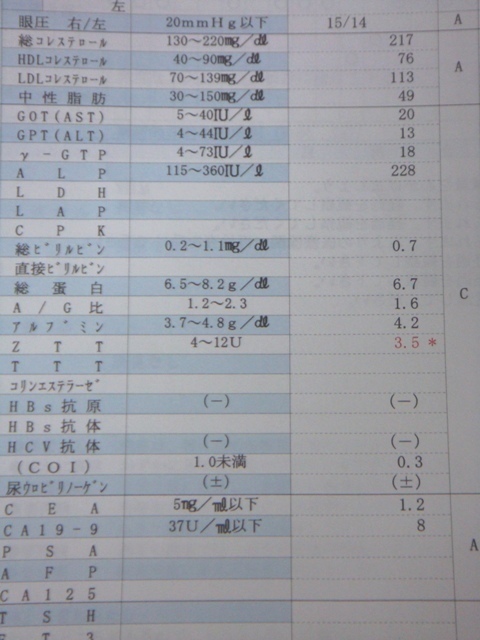 左
眼圧 右/左 20mmHg以下 15/14 A
総ｺﾚｽﾃﾛｰﾙ 130～220㎎/㎗ 217
HDLｺﾚｽﾃﾛｰﾙ 40～90㎎/㎗ 76 A
LDLｺﾚｽﾃﾛｰﾙ 70～139㎎/㎗ 113
中性脂肪 30～150㎎/㎗ 49
GOT(AST) 5～40IU/ℓ 20
GPT(ALT) 4～44IU/ℓ 13
γ-GTP 4～73IU/ℓ 18
ALP 115～360IU/ℓ 228
LDH
LAP
CPK
総ﾋﾞﾘﾙﾋﾞﾝ 0.2～1.1㎎/㎗ 0.7
直接ﾋﾞﾘﾙﾋﾞﾝ
総蛋白 6.5～8.2g/㎗ 6.7 C
A/G比 1.2～2.3 1.6
ｱﾙﾌﾞﾐﾝ 3.7～4.8g/㎗ 4.2
ZTT 4～12U 3.5 *
TTT
ｺﾘﾝｴｽﾃﾗｰｾﾞ
HBs抗原 (-) (-)
HBs抗体
HCV抗体 (-) (-)
(COI) 1.0未満 0.3
尿ｳﾛﾋﾞﾘﾉｰｹﾞﾝ (±) (±)
CEA 5㎎/㎖以下 1.2
CA19-9 37U/㎖以下 8
PSA A
AFP
CA125
TSH
FT3